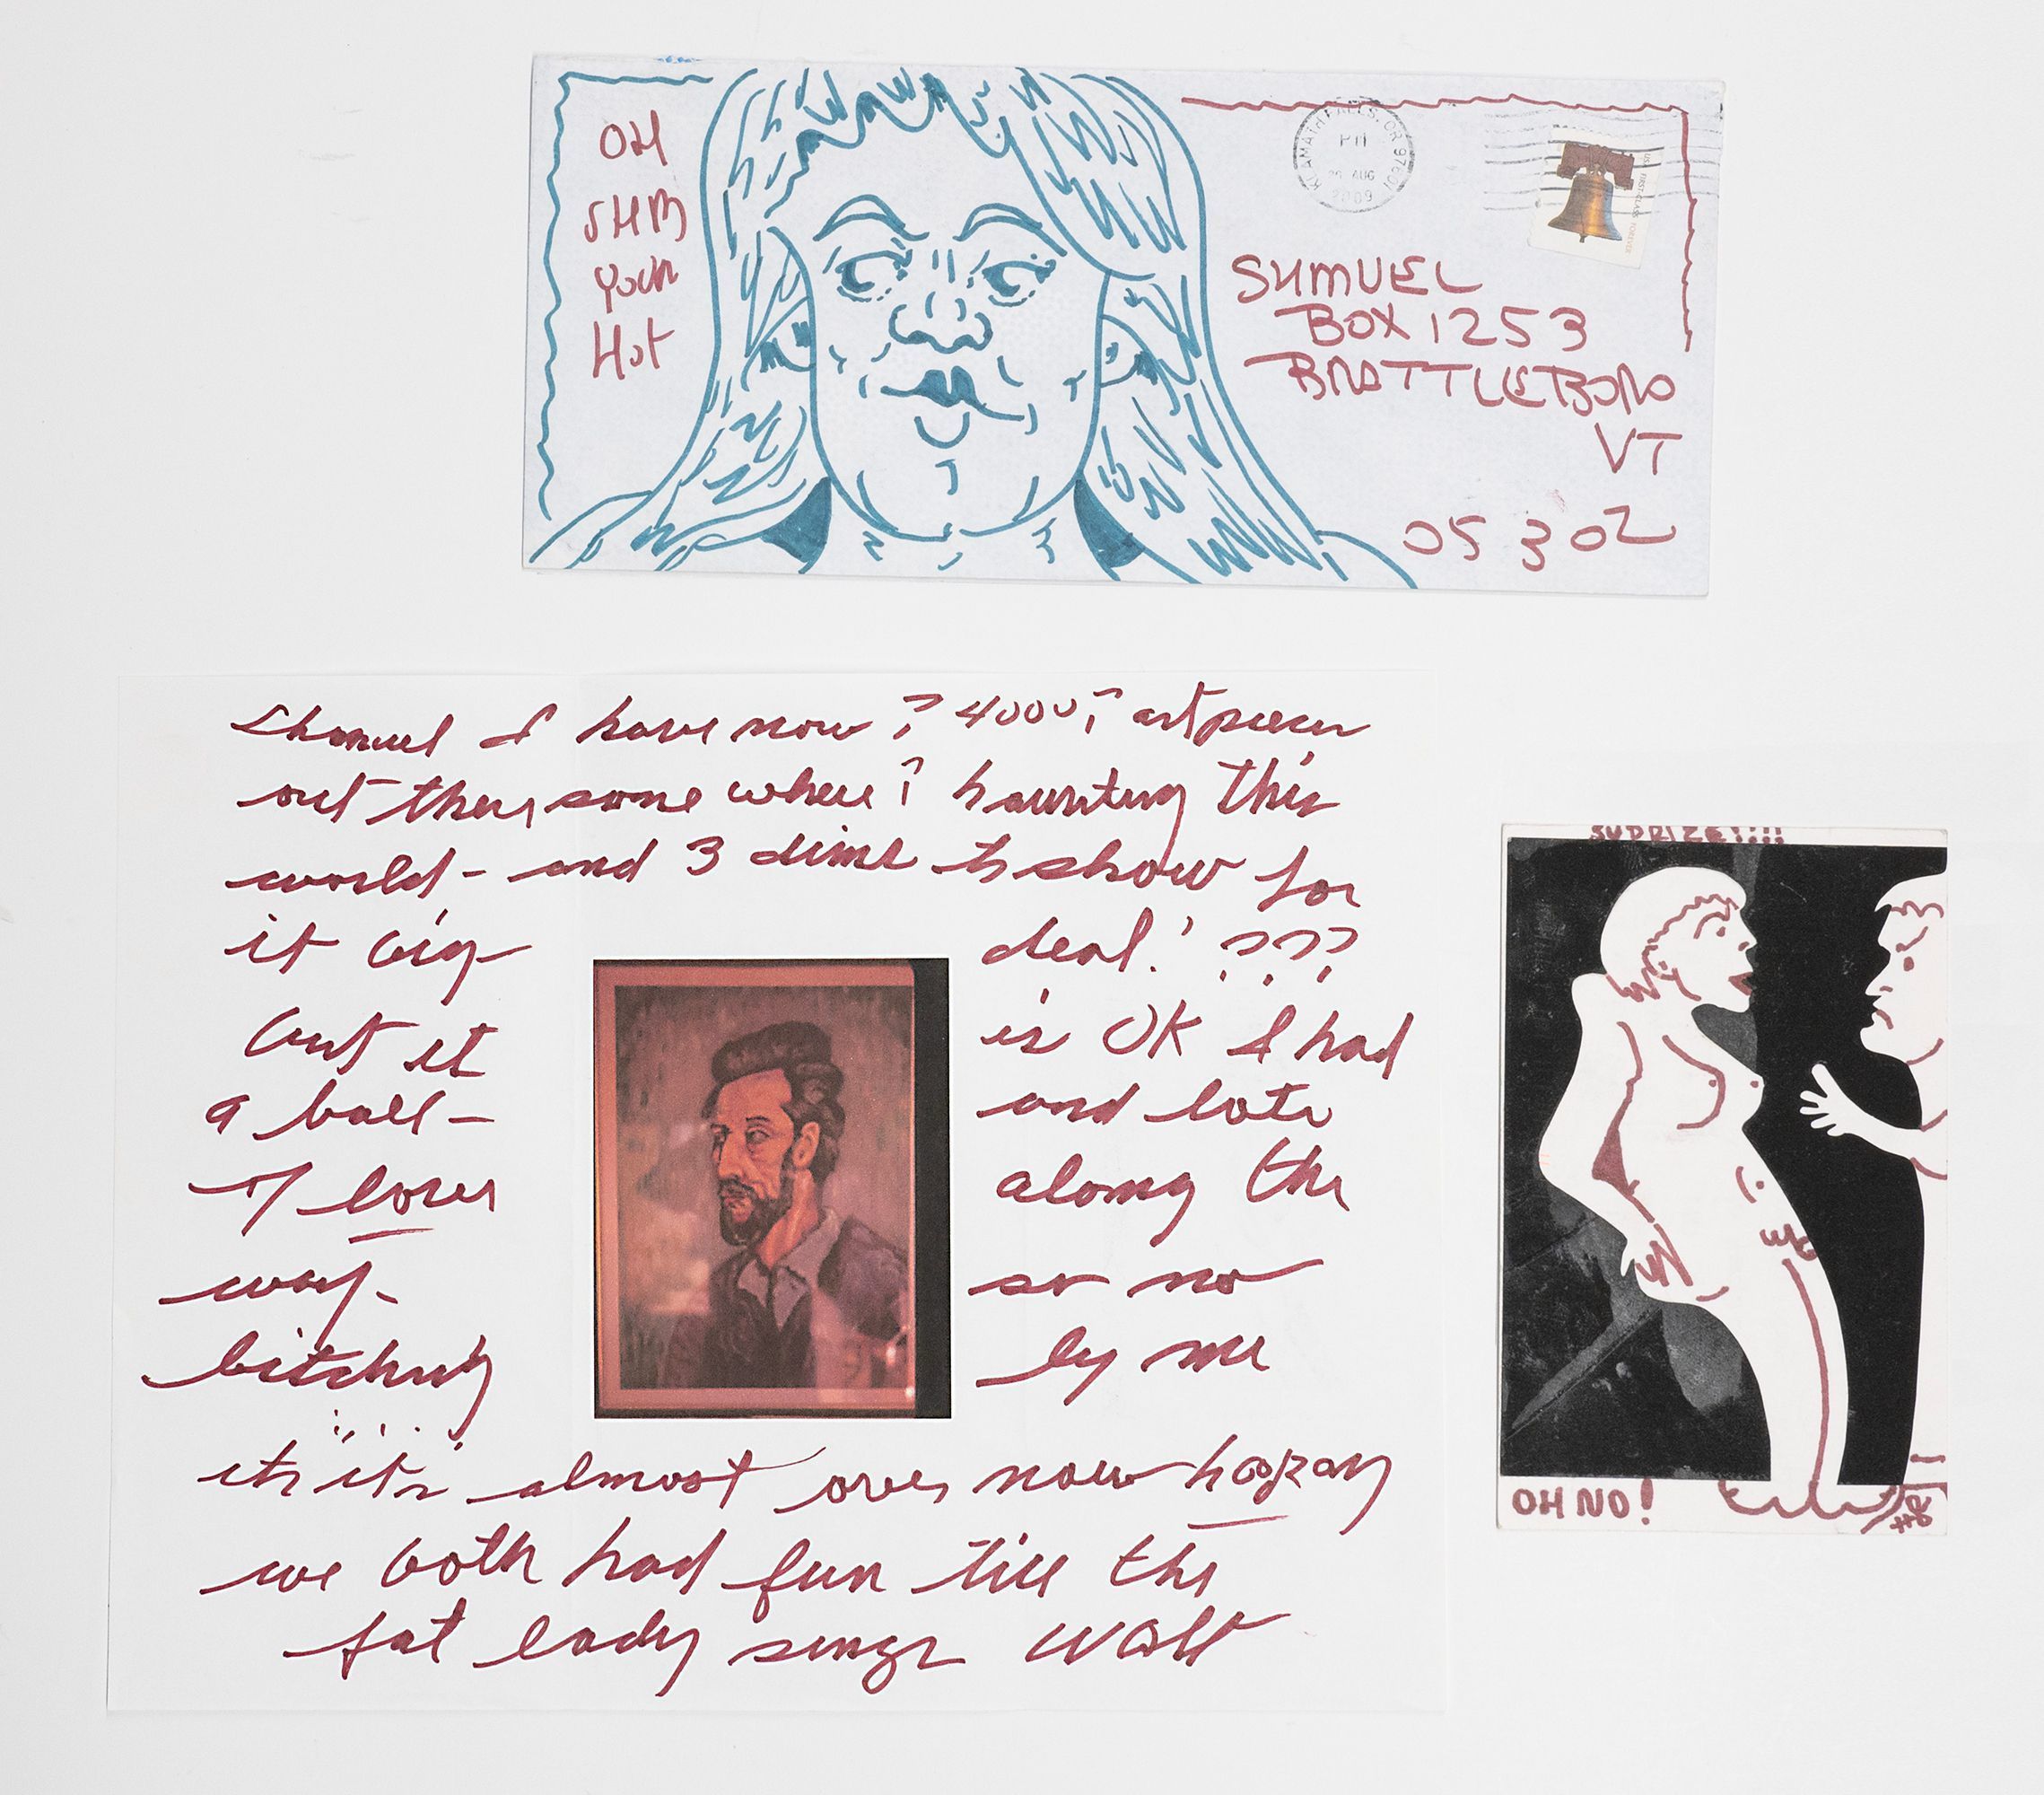 OH
SHM
YOUR
Hot
KLAMATH FALLS, OR 97601
PM
AUG
2009
US FIRST-CLASS FOREVER
SHMUEL
BOX 1253
BRATTLEBORO
VT
05302
Shmuel I have now ? 4000 ? art pieces
out there some where ? haunting this
world - and 3 dime to show for
it big deal! ???
but it is OK I had
a ball - and lots
of loves along the
way - so no
bitching by me
its its almost over now hoozay
we both had fun till the
fat lady sings Walt
SUPRIZE!!!!
OH NO!